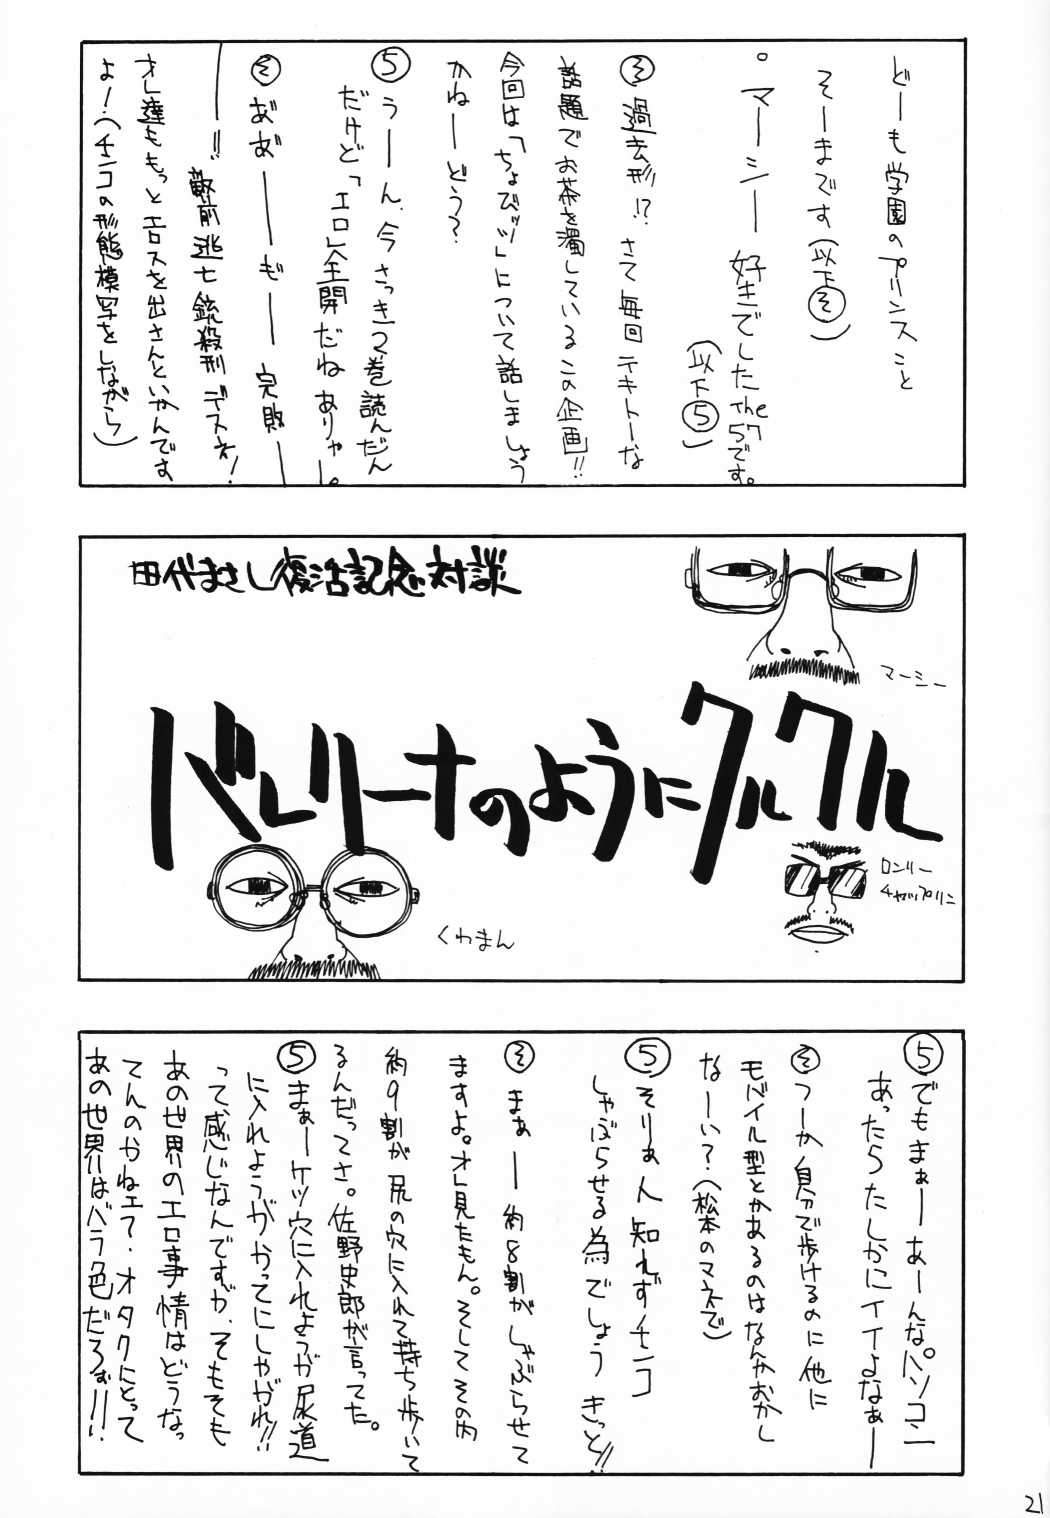 どーも学園のプリンスこと
そーまです(以下そ)
。マーシー好きでしたThe57です。
(以下5)
そ 過去形!?さて毎回テキトーな
話題でお茶を濁しているこの企画!!
今回は「ちょびッツ」について話しましょう
かねーどう?
5 うーん、今さっき2巻読んだん
だけど「エロ」全開だねありゃー。
そ あ゛あ゛ーーもーー完敗ー
ー!!敵前逃亡銃殺刑デスネ!
オレ達ももっとエロスを出さんといかんです
よ!(チンコの形態模写をしながら)
田代まさし復活記念対談
マーシー
バレリーナのようにクルクル
ロンリー
チャップリン
くわまん
5 でもまぁーあーんなパソコン
あったらたしかにイイよなぁー
そ つーか自分で歩けるのに他に
モバイル型とかあるのはなんかおかし
なーい?(松本のマネで)
5 そりぁ人知れずチンコ
しゃぶらせる為でしょうきっと!!
そ まぁー約8割がしゃぶらせて
ますよ。オレ見たもん。そしてその内
約9割が尻の穴に入れて持ち歩いて
るんだってさ。佐野史郎が言ってた。
5 まぁーケツ穴に入れようが尿道
に入れようがかってにしやがれ!!
って感じなんですが、そもそも
あの世界のエロ事情はどうなっ
てんのかねェ?オタクにとって
あの世界はバラ色だろぉ!!!
21